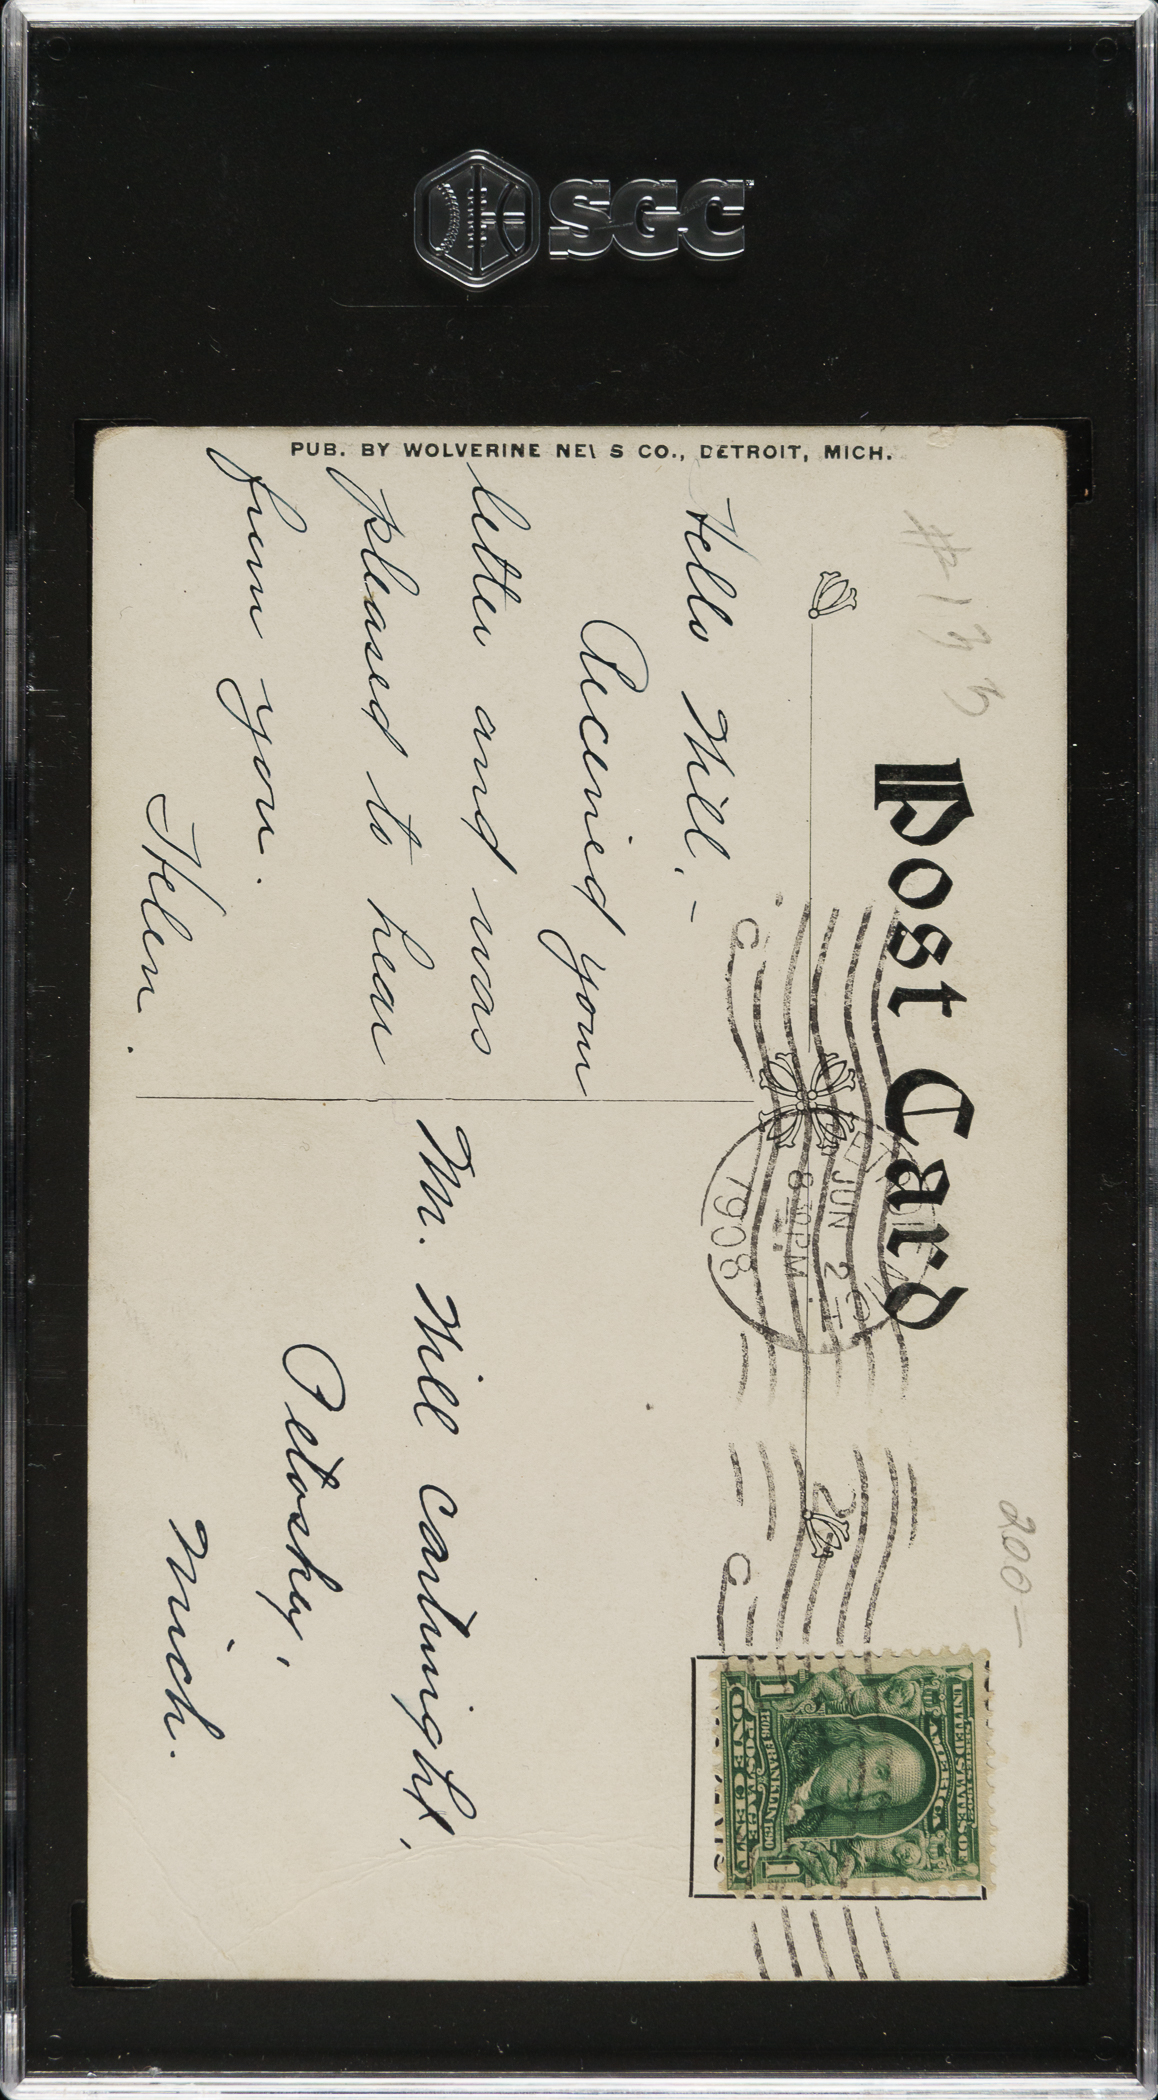 SGC
PUB. BY WOLVERINE NEWS CO., DETROIT, MICH.
# 133
200 -
Post Card
Hello Will, -
Received your
letter and was
pleased to hear
from you.
Helen.
JUN 2
8 30 PM
1908
C
2
C
Mr. Will Cartwright,
Petoskey,
Mich.
SERIES 1902
UNITED STATES OF
AMERICA
FRANKLIN
POSTAGE
ONE CENT
1
1